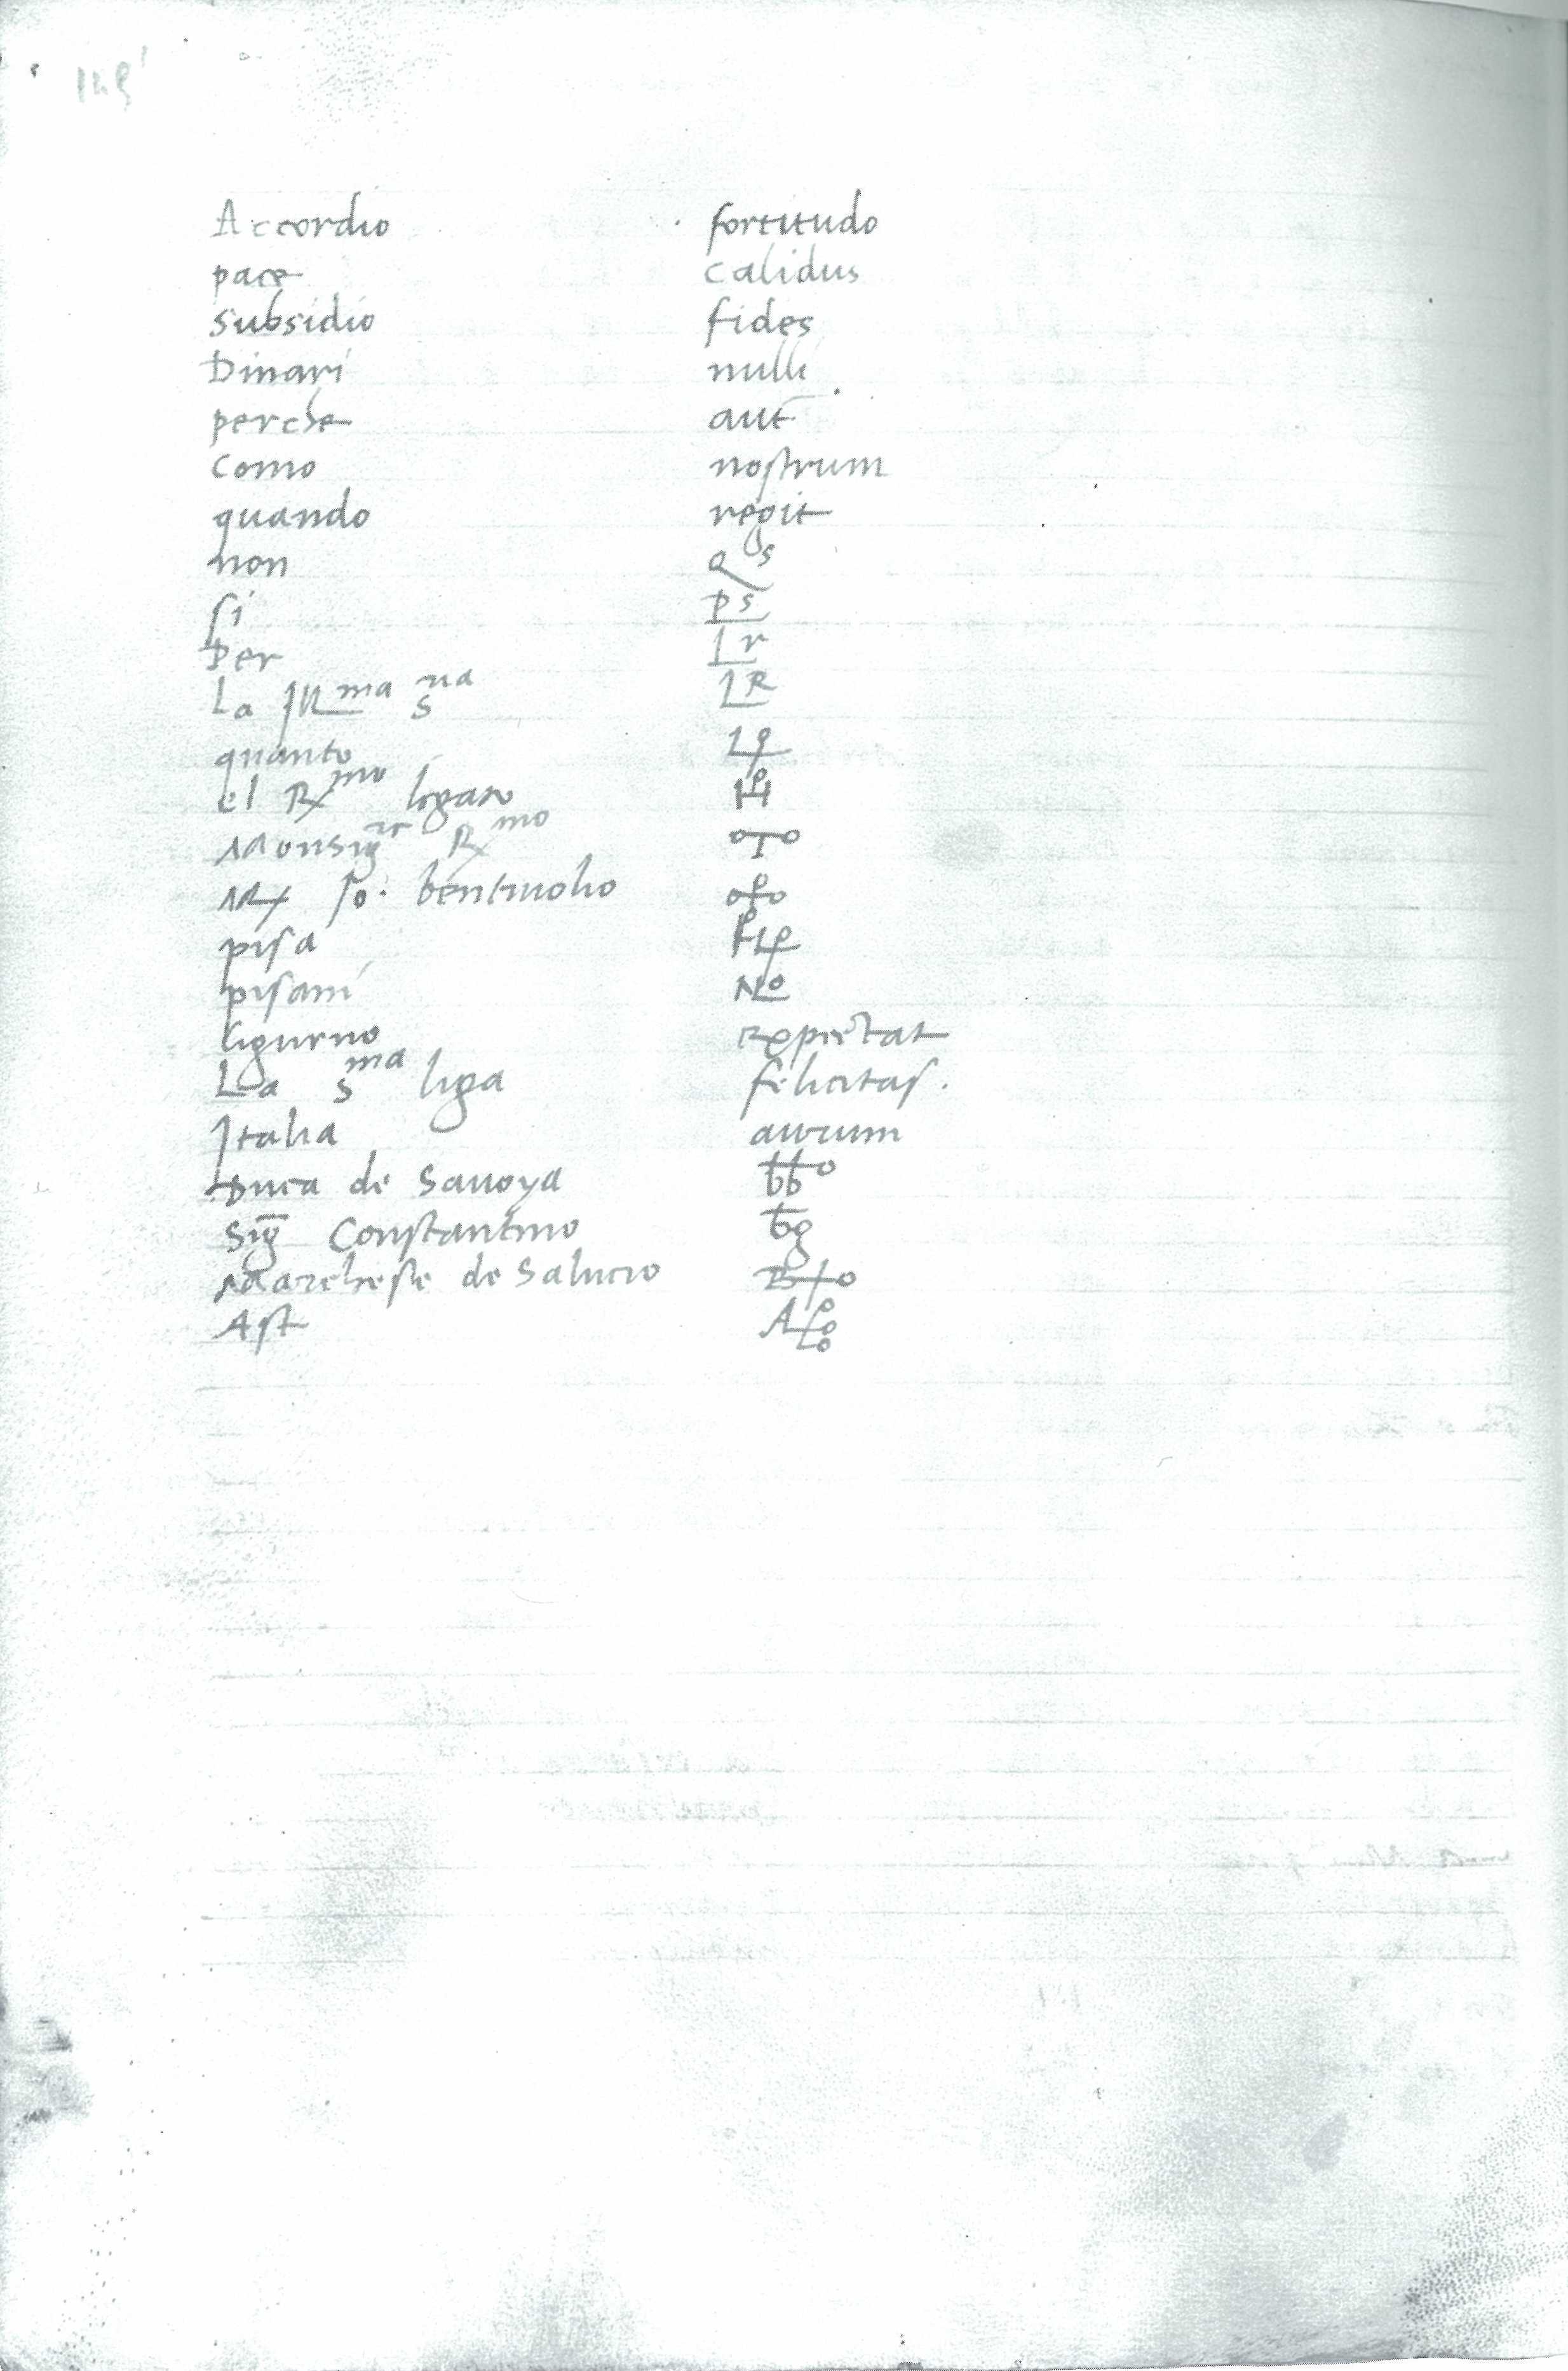 Accordio fortitudo
pace calidus
Subsidio fides
Dinari nulli
perche aut
Como nostrum
quando regit
non Qs
si ps
Per Lr
La Ill ma s ria LR
quanto
el R mo legato
Monsig or R mo
Mx Jo. bentiuolio
pisa
pisani No
ligurno expectat
La s ma liga felicitas.
Italia aurum
Duca de Sauoya bbo
Sig Constantino bg
Marchese de Saluzo
Ast